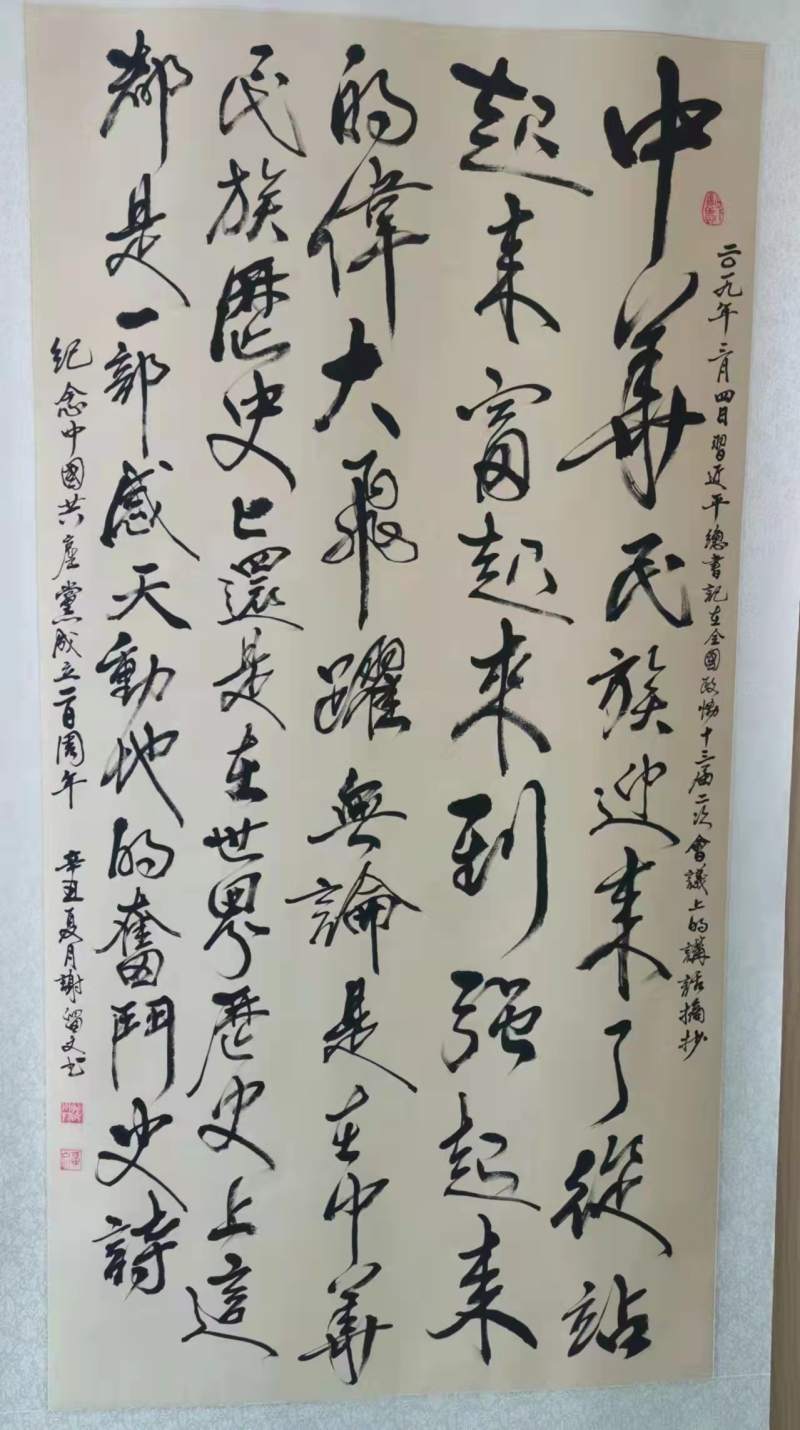 二〇一九年三月四日習近平總書記在全國政協十三届二次會議上的講話摘抄
中華民族迎來了從站
起来富起來到强起来
的偉大飛躍無論是在中華
民族歷史上還是在世界歷史上這
都是一部感天動地的奮鬥史詩
紀念中國共產黨成立一百周年
辛丑夏月謝留文书